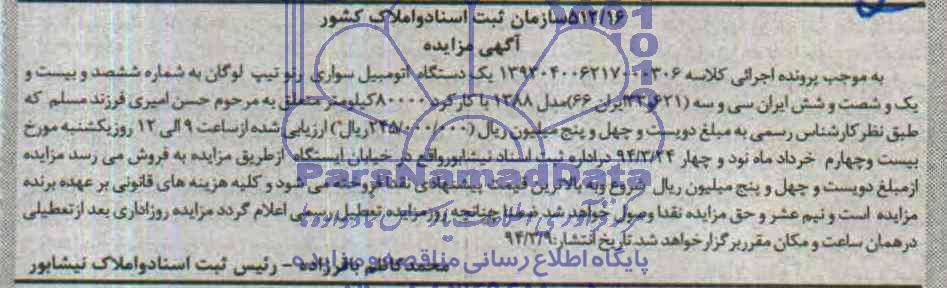 ۵۱۲/۱۶سازمان ثبت اسنادواملاک کشور
آگهی مزایده
به موجب پرونده اجرائی کلاسه ۱۳۹۳۰۴۰۰۶۲۱۷۰۰۰۳۰۶ یک دستگاه اتومبیل سواری رنو تیپ لوگان به شماره ششصد و بیست و
یک و شصت و شش ایران سی و سه (۶۲۱و۳۳ایران ۶۶)مدل ۱۳۸۸ با کارکرد ۸۰۰۰۰کیلومتر متعلق به مرحوم حسن امیری فرزند مسلم که
طبق نظر کارشناس رسمی به مبلغ دویست و چهل و پنج میلیون ریال (۲۴۵/۰۰۰/۰۰۰ریال) ارزیابی شده ازساعت ۹ الی ۱۲ روز یکشنبه مورخ
بیست وچهارم خرداد ماه نود و چهار ۹۴/۳/۲۴ دراداره ثبت اسناد نیشابورواقع در خیابان ایستگاه ازطریق مزایده به فروش می رسد مزایده
ازمبلغ دویست و چهل و پنج میلیون ریال شروع وبه بالاترین قیمت پیشنهادی نقدا فروخته می شود و کلیه هزینه های قانونی بر عهده برنده
مزایده است و نیم عشر و حق مزایده نقدا وصول خواهد شد ضمنا چنانچه روزمزایده تعطیل رسمی اعلام گردد مزایده روزاداری بعد ازتعطیلی
درهمان ساعت و مکان مقرربرگزارخواهد شد.تاریخ انتشار:۹۴/۳/۹
محمدکاظم باقرزاده - رئیس ثبت اسنادواملاک نیشابور
ParsNamadData
پایگاه اطلاع رسانی مناقصه و مزایده